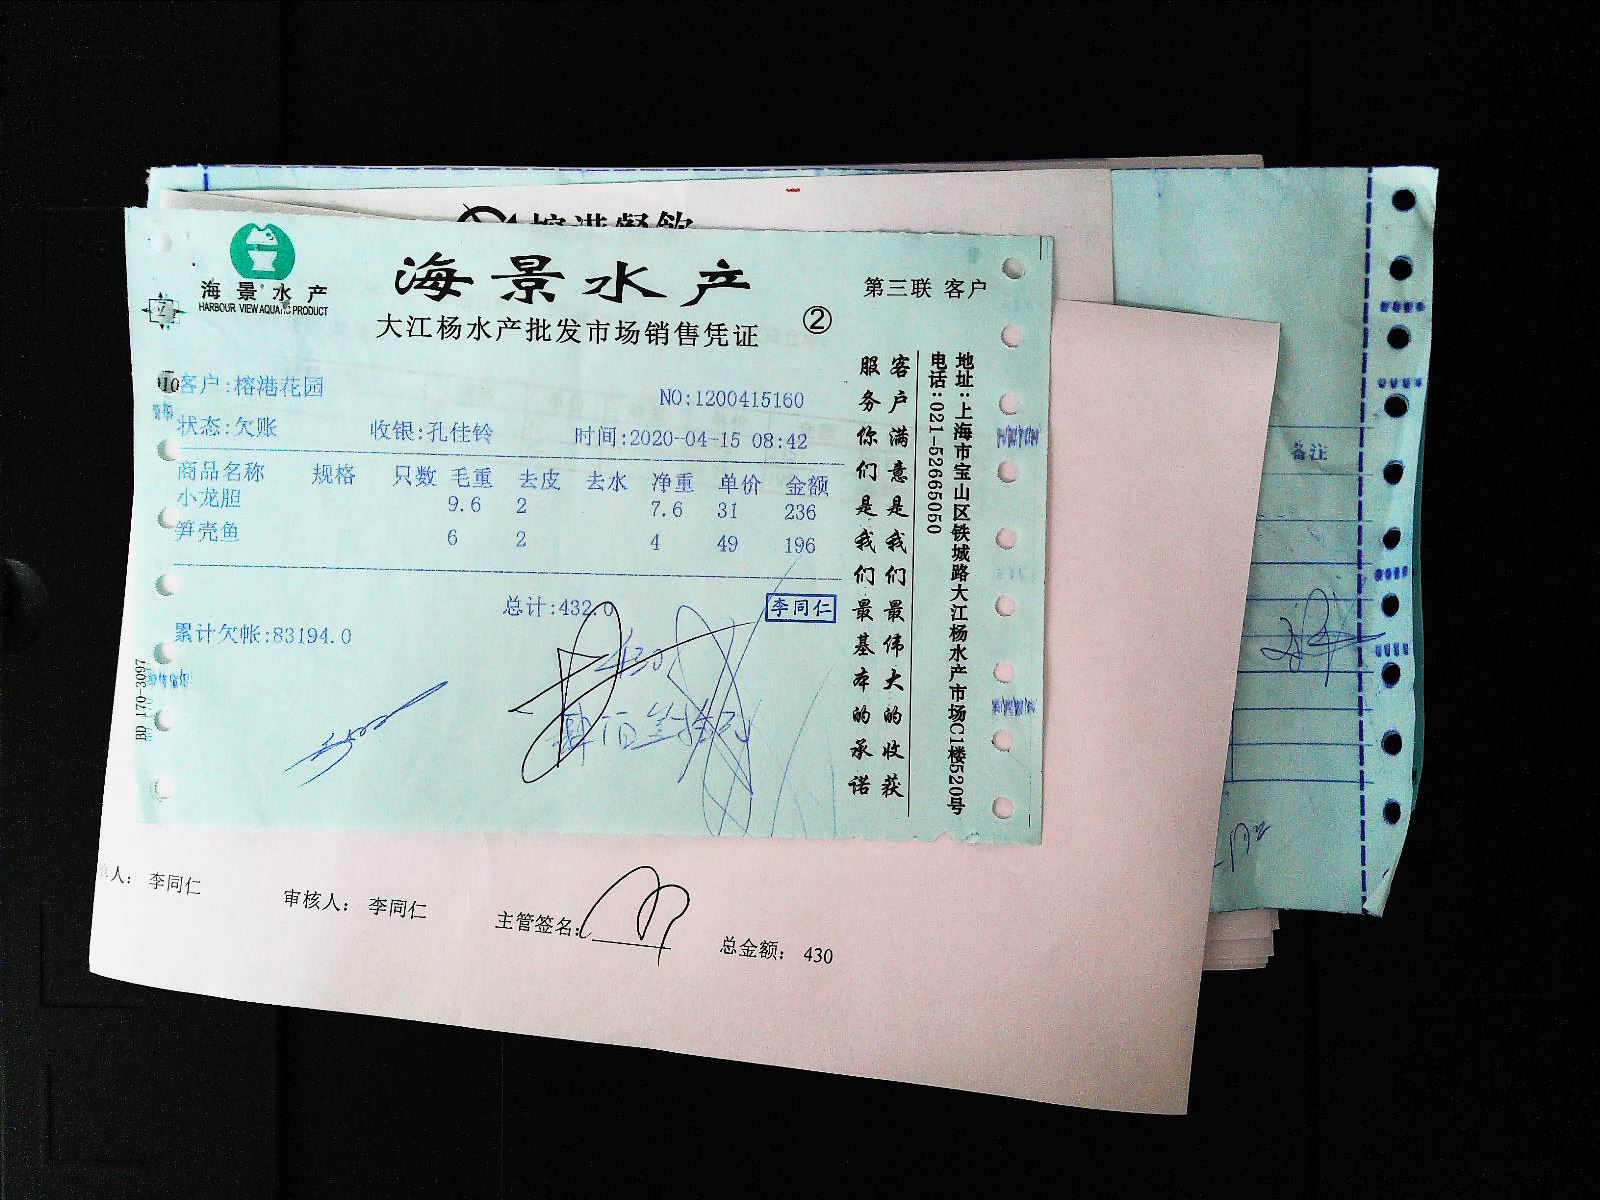 榕港餐飲
海景水产
HARBOUR VIEW AQUATIC PRODUCT
海景水产
第三联 客户
大江杨水产批发市场销售凭证
②
客户:榕港花园
NO:1200415160
状态:欠账 收银:孔佳铃 时间:2020-04-15 08:42
商品名称 规格 只数 毛重 去皮 去水 净重 单价 金额
小龙胆 9.6 2 7.6 31 236
笋壳鱼 6 2 4 49 196
总计:432.0
李同仁
累计欠帐:83194.0
430
BD 170-3097
客户满意是我们最伟大的收获
服务你们是我们最基本的承诺
地址:上海市宝山区铁城路大江杨水产市场C1楼520号
电话:021-52665050
备注
人: 李同仁
审核人: 李同仁
主管签名:
总金额: 430